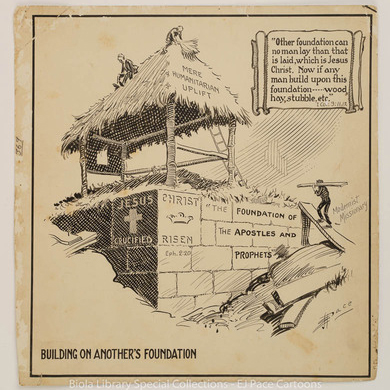 "Other foundation can
no man lay than that
is laid, which is Jesus
Christ. Now if any
man build upon this
foundation----wood,
hay, stubble, etc."
MERE
HUMANITARIAN
UPLIFT
JESUS
CRUCIFIED
CHRIST
IS
RISEN
Eph. 2:20
"THE FOUNDATION OF
THE APOSTLES AND
PROPHETS
Modernist
Missionary
Pace
BUILDING ON ANOTHER'S FOUNDATION
Biola Library Special Collections - EJ Pace Cartoons